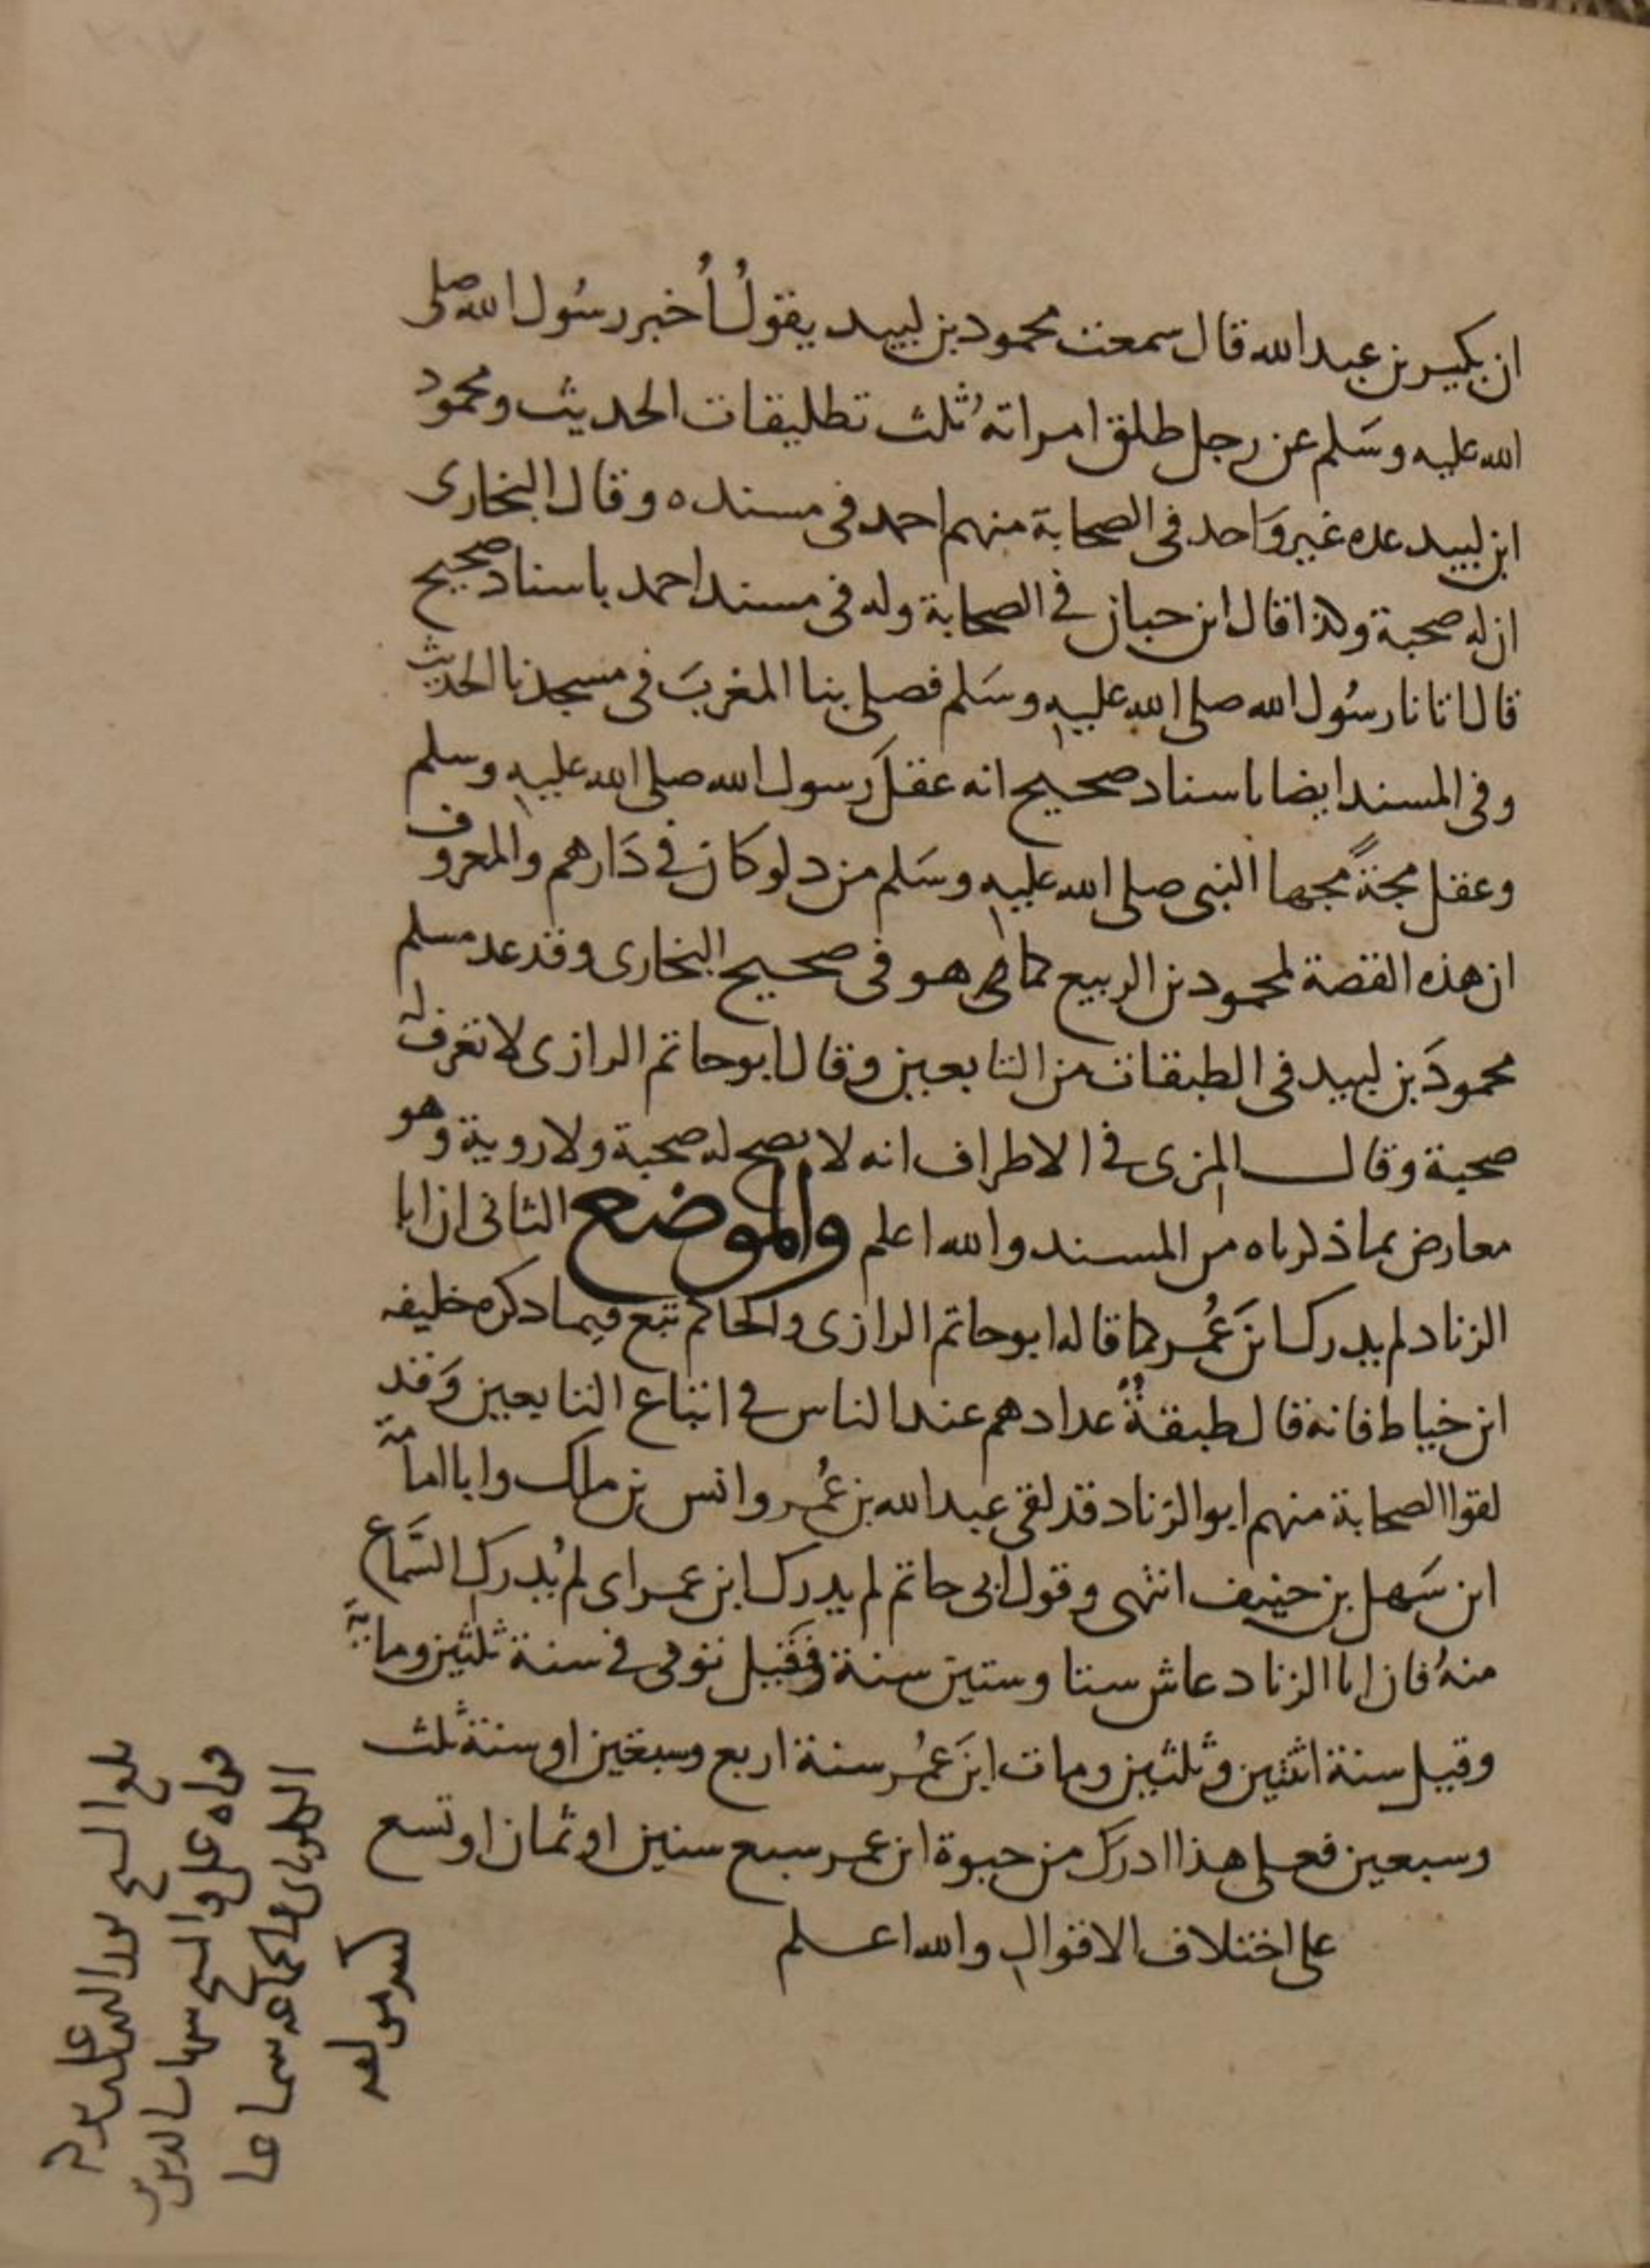 ان بكير بن عبد الله قال سمعت محمود بن لبيد يقول أُخبر رسُول الله صلى
الله عليه وسَلم عن رجل طلق امراته ثلث تطليقات الحديث ومحمود
ابن لبيد عده غير وَاحد في الصحابة منهم احمد في مسنده وقال البخارى
ان له صحبة وكذا قال ابن حبان في الصحابة وله في مسند احمد باسناد صحيح
قال اتانا رسُول الله صلى الله عليه وسَلم فصلى بنا المغربَ في مسجدنا الحديث
وفى المسند ايضا باسناد صحيح انه عقلَ رسول الله صلى الله عليه وسلم
وعقل مجةً مجها النبى صلى الله عليه وسَلم من دلو كان في دَارهم والمعروف
ان هذه القصة لمحمود بن الربيع كما هو في صحيح البخارى وقد عد مسلم
محمودَ بن لبيد في الطبقات من التابعين وقال ابو حاتم الرازى لا تعرف له
صحبة وقال المزى في الاطراف انه لا يصح له صحبة ولا روية وهو
معارض بما ذكرناه من المسند والله اعلم والموضع الثانى ان ابا
الزناد لم يدرك ابنَ عُمر كما قاله ابو حاتم الرازى والحاكم تبع فيما ذكره خليفه
ابن خياط فانه قال طبقةٌ عدادهم عند الناس في اتباع التابعين وَقد
لقوا الصحابة منهم ابو الزناد قد لقى عبد الله بن عُمر وانس بن ملك وابا امامة
ابن سَهل بن حنيف انتهى وقول ابى حاتم لم يدرك ابن عمر اى لم يُدرك السَّماع
منهُ فان ابا الزناد عاش ستا وستين سنة فقيل توفى في سنة ثلثين ومايةٍ
وقيل سنة اثنين وثلثين ومات ابنَ عمُر سنة اربع وسبعين او سنة ثلث
وسبعين فعلى هذا ادرك من حيوة ابن عمر سبع سنين او ثمان او تسع
على اختلاف الاقوال والله اعلم
بلغ الشيخ نور الدين على
قراه على والشيخ شهاب الدين
والجماعه سماعا
كتبه مولفه